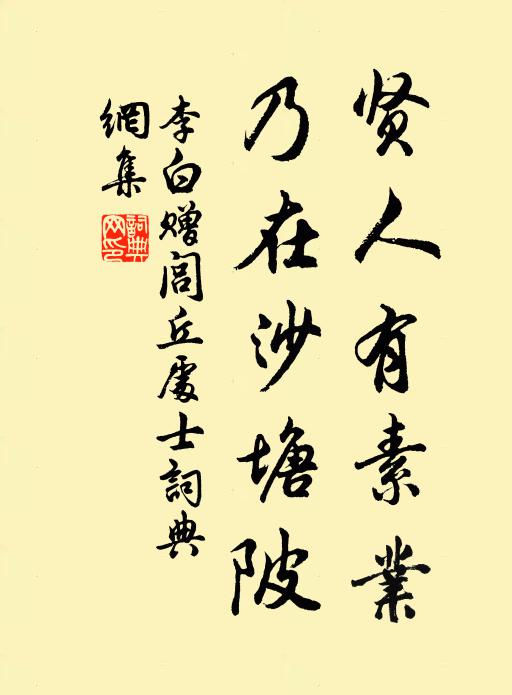 贤人有素業
乃在沙塘陂
李白赠闾丘處士詞典
網集
詞典
网印